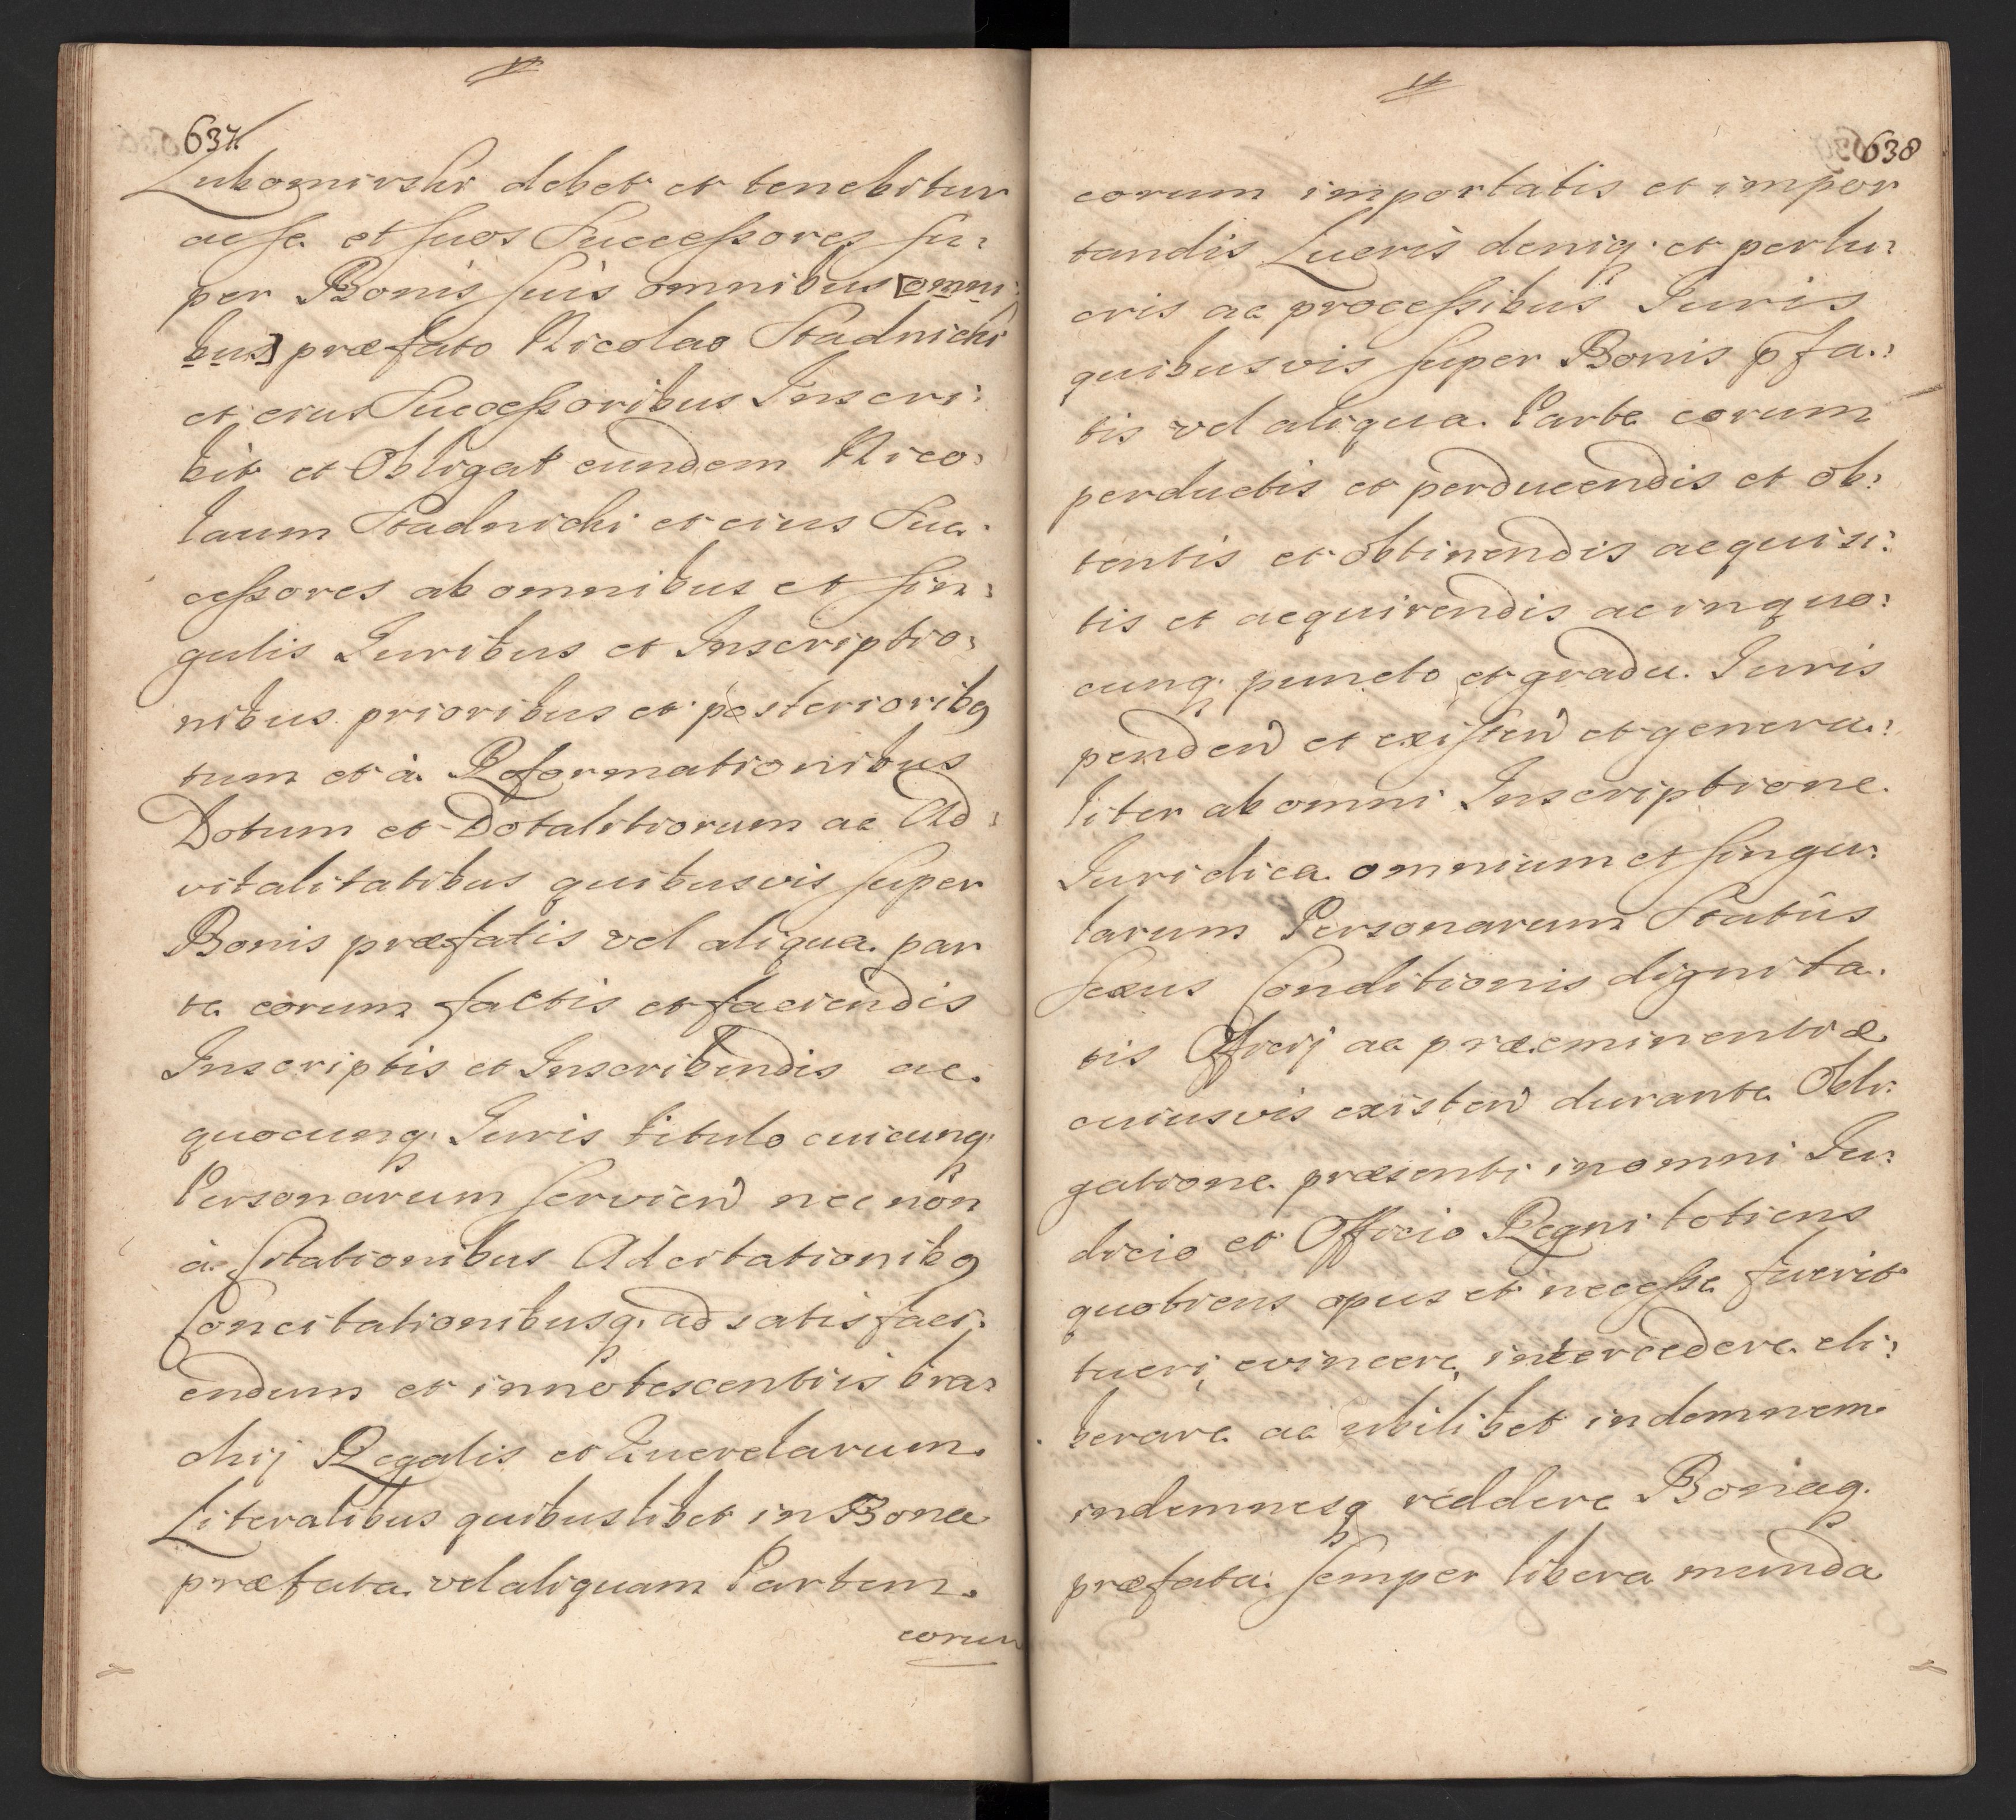 637.
Lubomirski debet et tenebitur
ac se et suos Successores su:
per Bonis suis omnibus [omni:
bus] præfato Nicolao Stadnicki
et eius Successoribus Inscri:
bit et Obligat eundem Nico:
laum Stadnicki et eius Suc:
cessores ab omnibus et sin:
gulis Iuribus et Inscriptio:
nibus prioribus et posterioribq
tum et à Reformationibus
Dotum et Dotalitiorum ac Ad:
vitalitatibus quibusvis super
Bonis præfatis vel aliqua par
te eorum factis et faciendis
Inscriptis et Inscribendis ac
quocunq. Iuris titulo cuicunq.
Personarum servien nec non
à Citationibus Adcitationibq
Concitationibusq. ad satisfaci:
endum et innotescentiis bra:
chij Regalis et Querelarum
Literalibus quibuslibet in Bona
præfata vel aliquam Partem
eorum
638
eorum importatis et impor
tandis Lucris deniq. et perlu:
cris ac processibus Iuris
quibusvis super Bonis pfa:
tis vel aliqua Parte eorum
perductis et perducendis et ob:
tentis et obtinendis acquisi:
tis et acquirendis ac in quo:
cunq. puncto et gradu Iuris
penden et existen et genera:
liter ab omni Inscriptione
Iuridica omnium et singu:
larum Personarum Statûs
Sexus Conditionis dignita:
tis Officij ac præeminentiæ
cuiusvis existen durante Obli:
gatione præsenti in omni Iu:
dicio et Officio Regni totiens
quotiens opus et necesse fuerit
tueri, evincere, intercedere eli:
berare ac ubilibet indemnem
indemnesq reddere Bonaq.
præfata semper libera munda